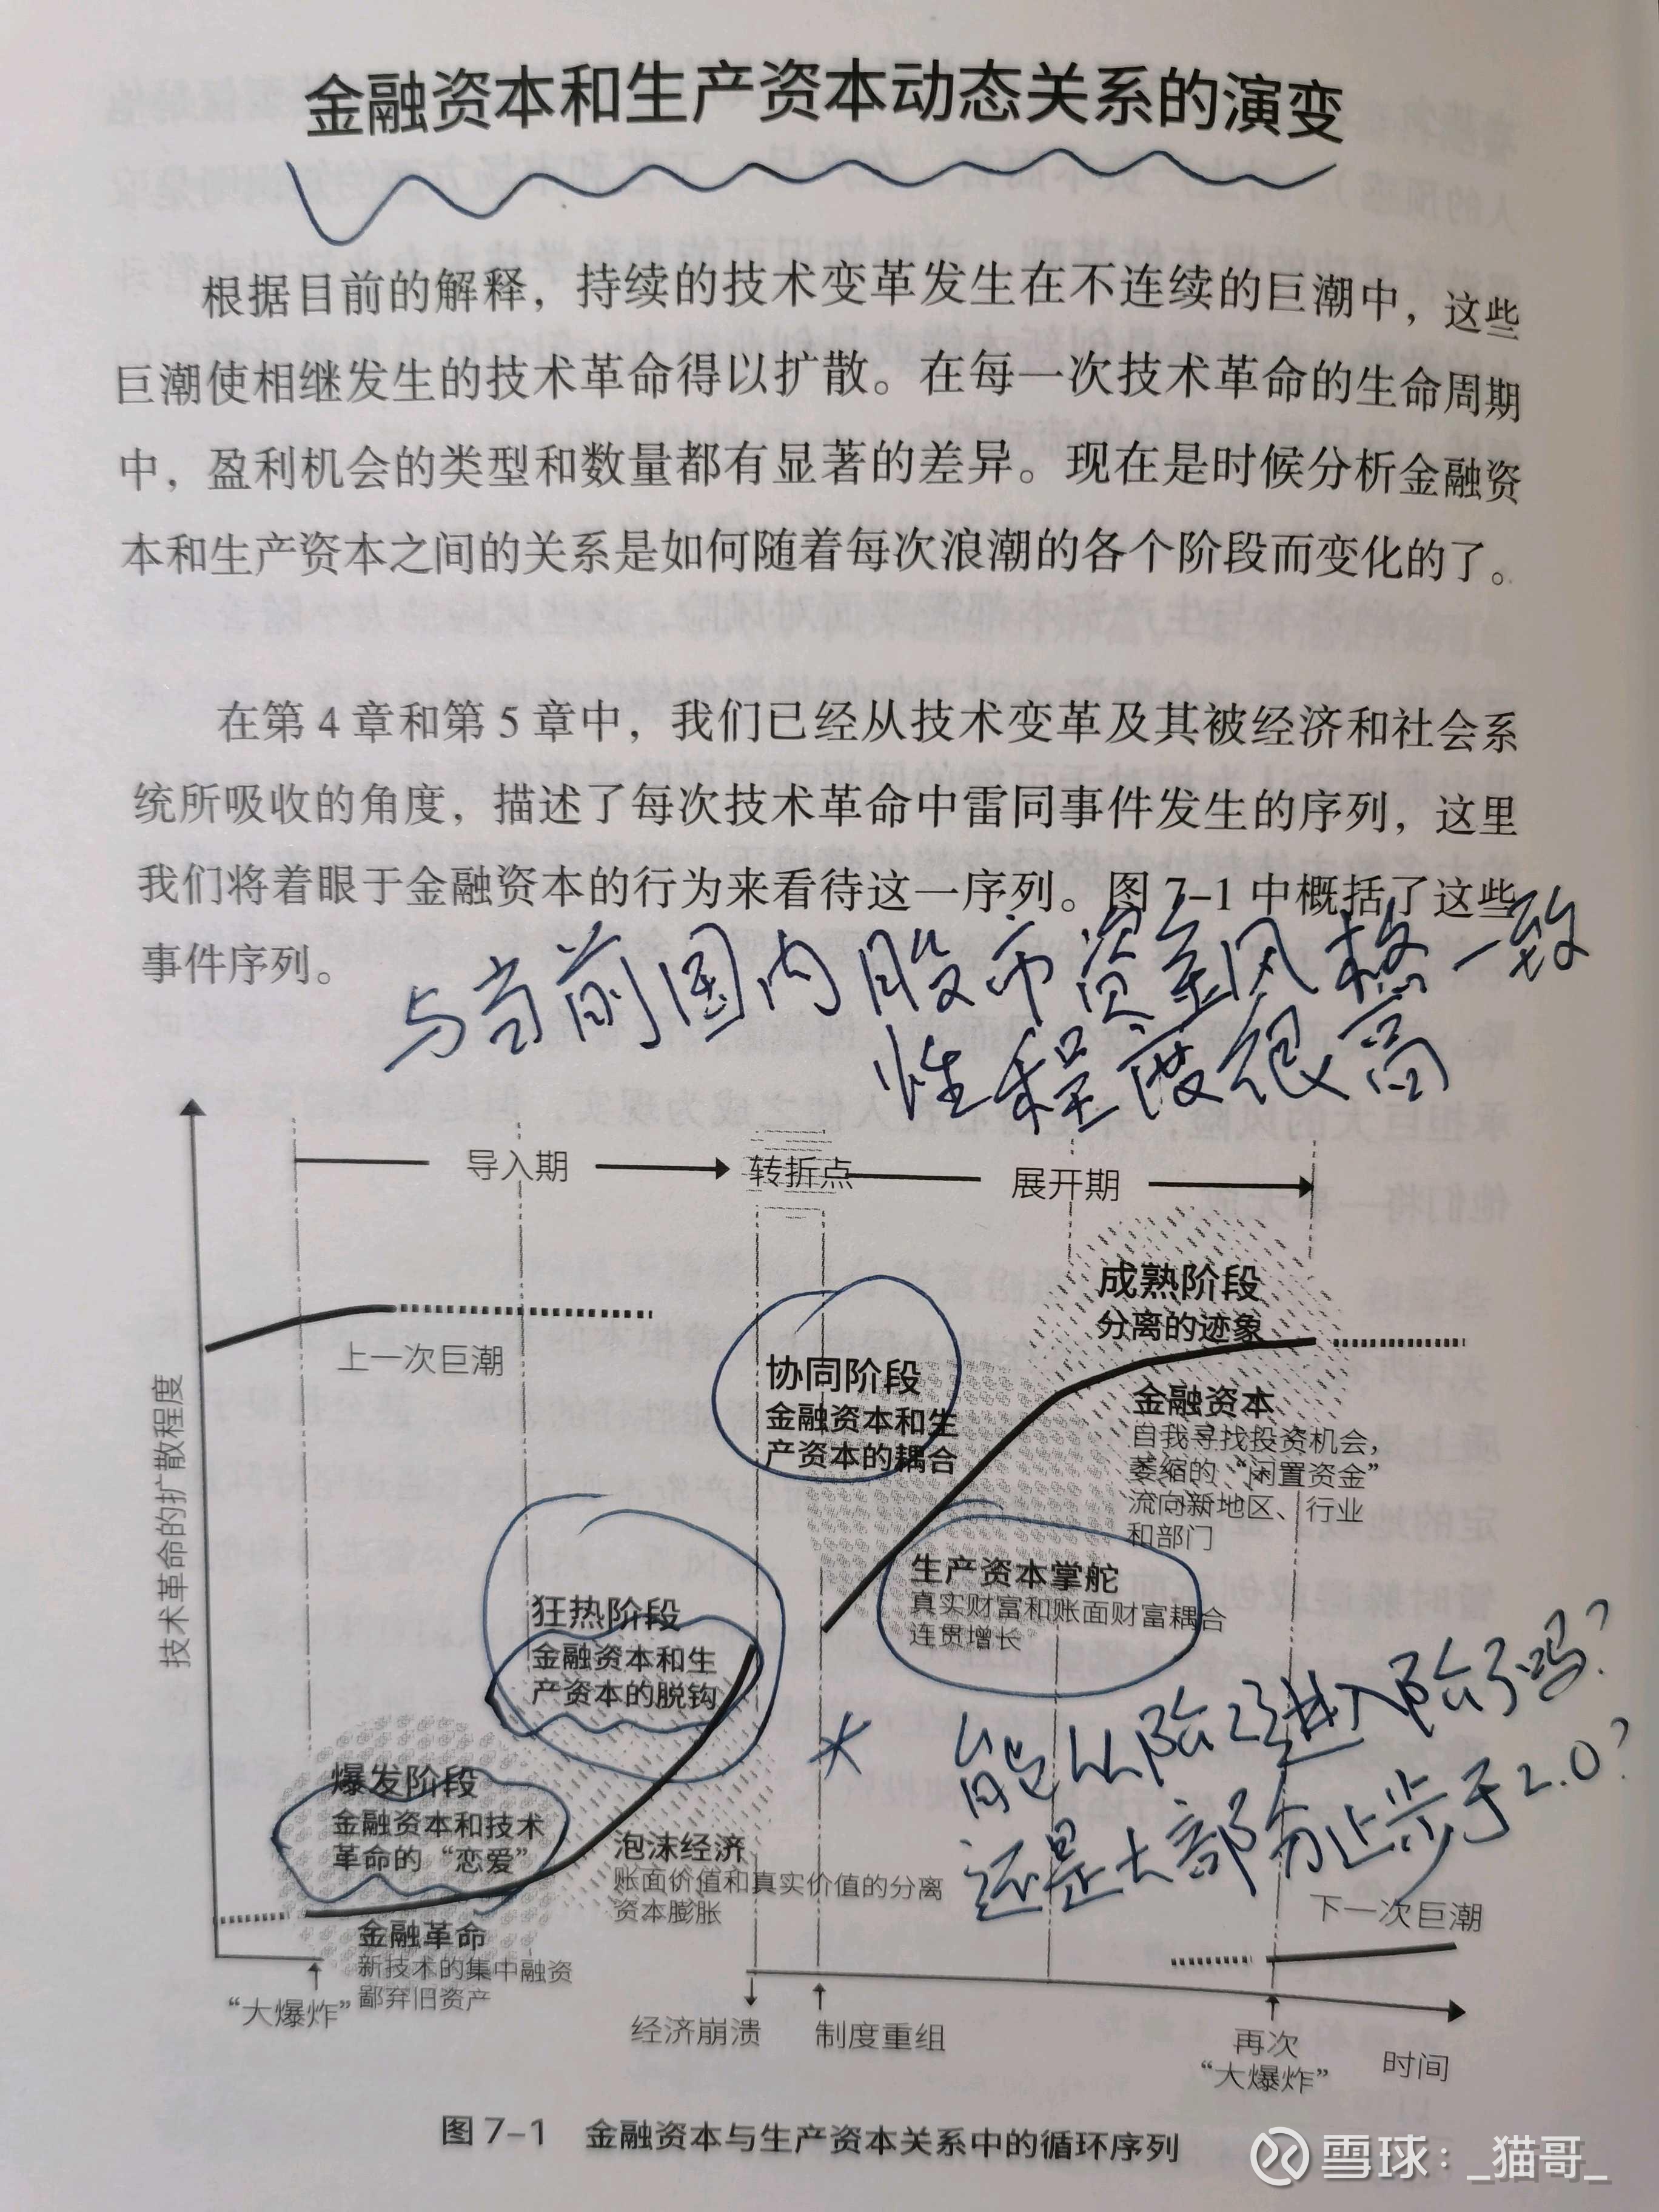 金融资本和生产资本动态关系的演变
根据目前的解释，持续的技术变革发生在不连续的巨潮中，这些
巨潮使相继发生的技术革命得以扩散。在每一次技术革命的生命周期
中，盈利机会的类型和数量都有显著的差异。现在是时候分析金融资
本和生产资本之间的关系是如何随着每次浪潮的各个阶段而变化的了。
在第4章和第5章中，我们已经从技术变革及其被经济和社会系
统所吸收的角度，描述了每次技术革命中雷同事件发生的序列，这里
我们将着眼于金融资本的行为来看待这一序列。图7-1中概括了这些
事件序列。
与当前国内股市资金风格一致
性程度很高
导入期
转折点
展开期
技术革命的扩散程度
上一次巨潮
成熟阶段
分离的迹象
协同阶段
金融资本和生
产资本的耦合
金融资本
自我寻找投资机会，
萎缩的“闲置资金”
流向新地区、行业
和部门
生产资本掌舵
真实财富和账面财富耦合
连贯增长
狂热阶段
金融资本和生
产资本的脱钩
能从阶2进入阶3吗？
还是大部分止步于2.0？
爆发阶段
金融资本和技术
革命的“恋爱”
泡沫经济
账面价值和真实价值的分离
资本膨胀
金融革命
新技术的集中融资
鄙弃旧资产
下一次巨潮
“大爆炸”
经济崩溃
制度重组
再次
“大爆炸”
时间
图7-1 金融资本与生产资本关系中的循环序列
雪球：_猫哥_